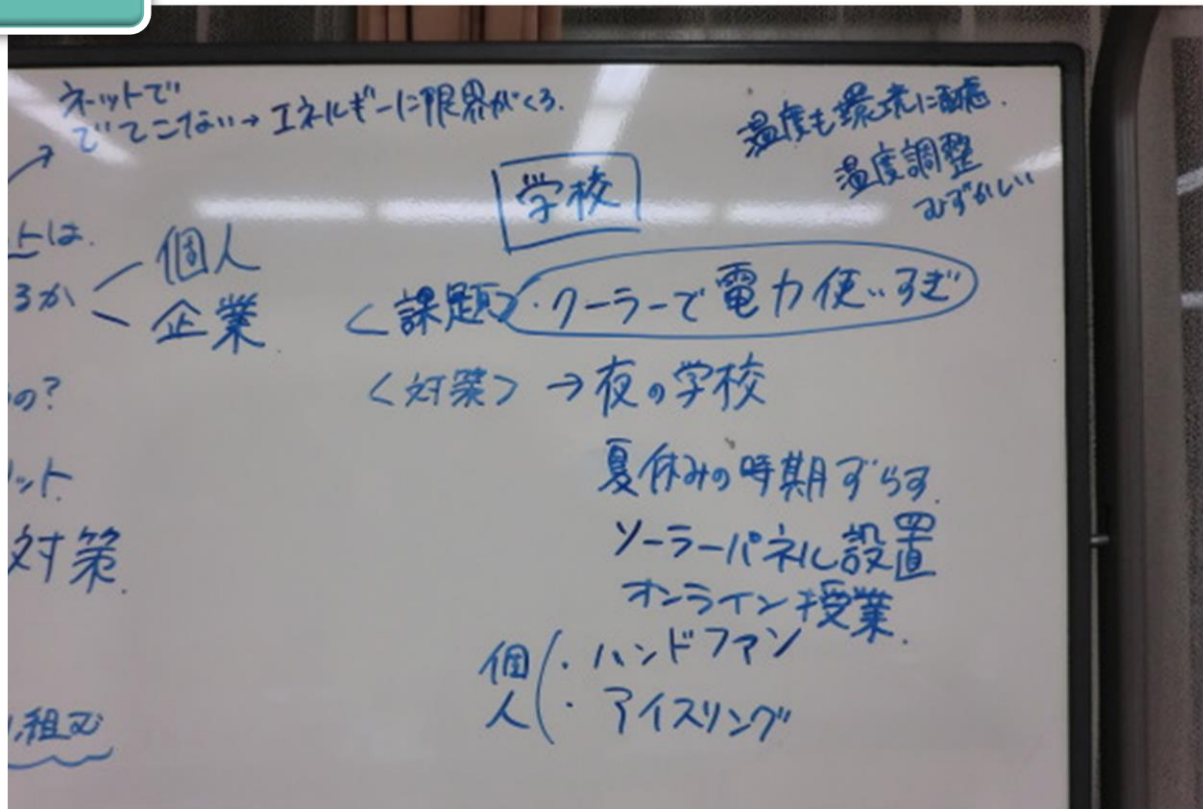 ネットで
でてこない→エネルギーに限界がくる.
温度も環境に配慮.
温度調整
むずかしい
学校
トは.
るか
個人
企業
<課題>・クーラーで電力使いすぎ
<対策>→夜の学校
の?
夏休みの時期ずらす.
ット
ソーラーパネル設置
対策.
オンライン授業.
個人(・ハンドファン
・アイスリング
組む